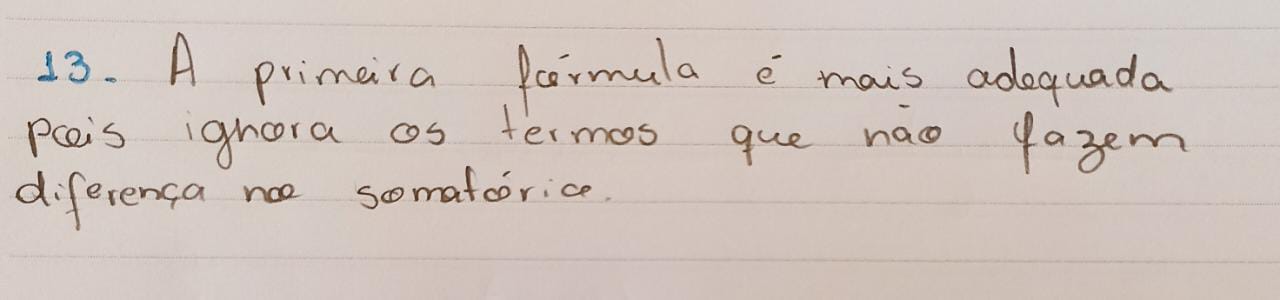 13. A primeira fórmula é mais adequada
pois ignora os termos que não fazem
diferença no somatório.